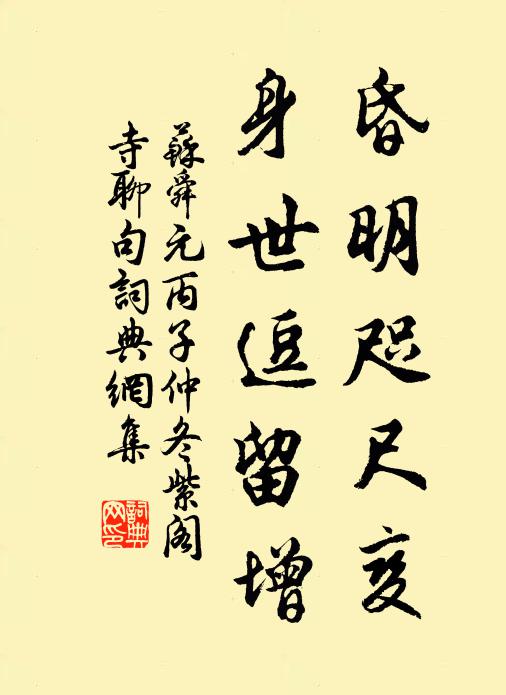 昏明咫尺变
身世逗留增
蘇舜元丙子仲冬紫阁
寺聊句詞典網集
詞典网印